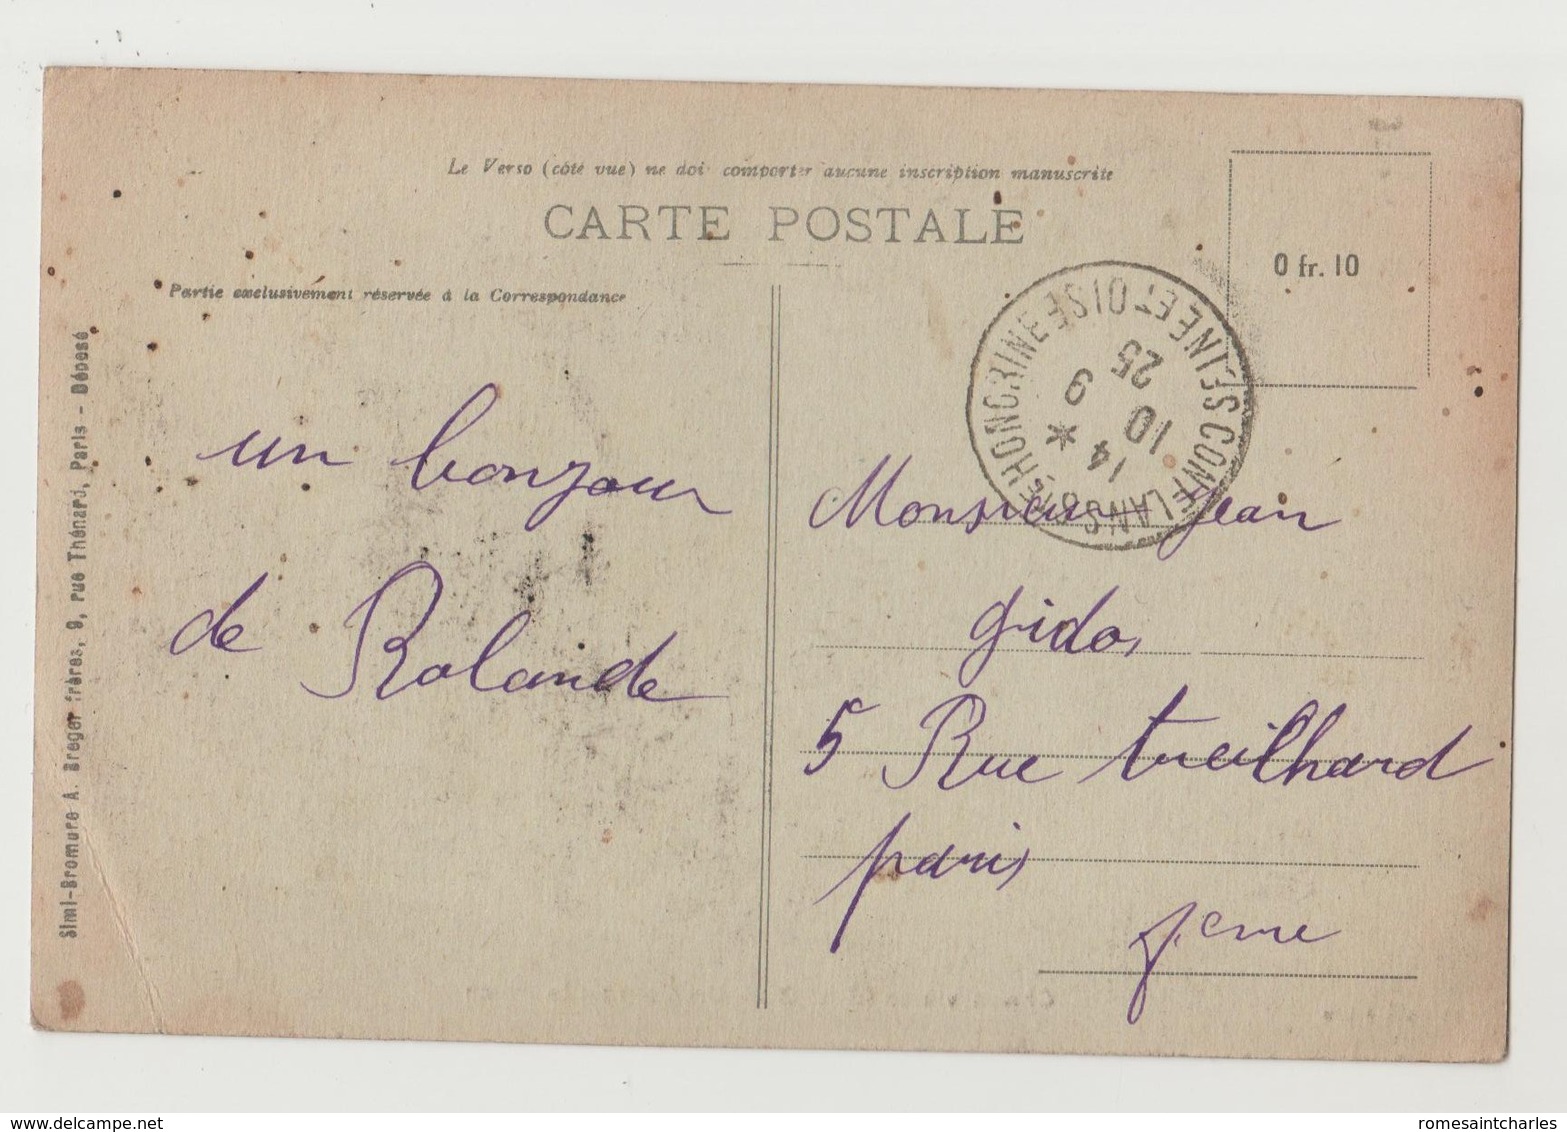 Le Verso (côté vue) ne doi comporter aucune inscription manuscrite
CARTE POSTALE
Partie exclusivement réservée à la Correspondance
0 fr. 10
CONFLANS STE HONORINE SEINE ET OISE
14 * 9
10
25
un bonjour
de Rolande
Monsieur jean
gidos
5 Rue treilhard
paris
Simi-Bromure A. Breger frères, 9, rue Thénard, Paris - Déposé
delcampe.net
romesaintcharles